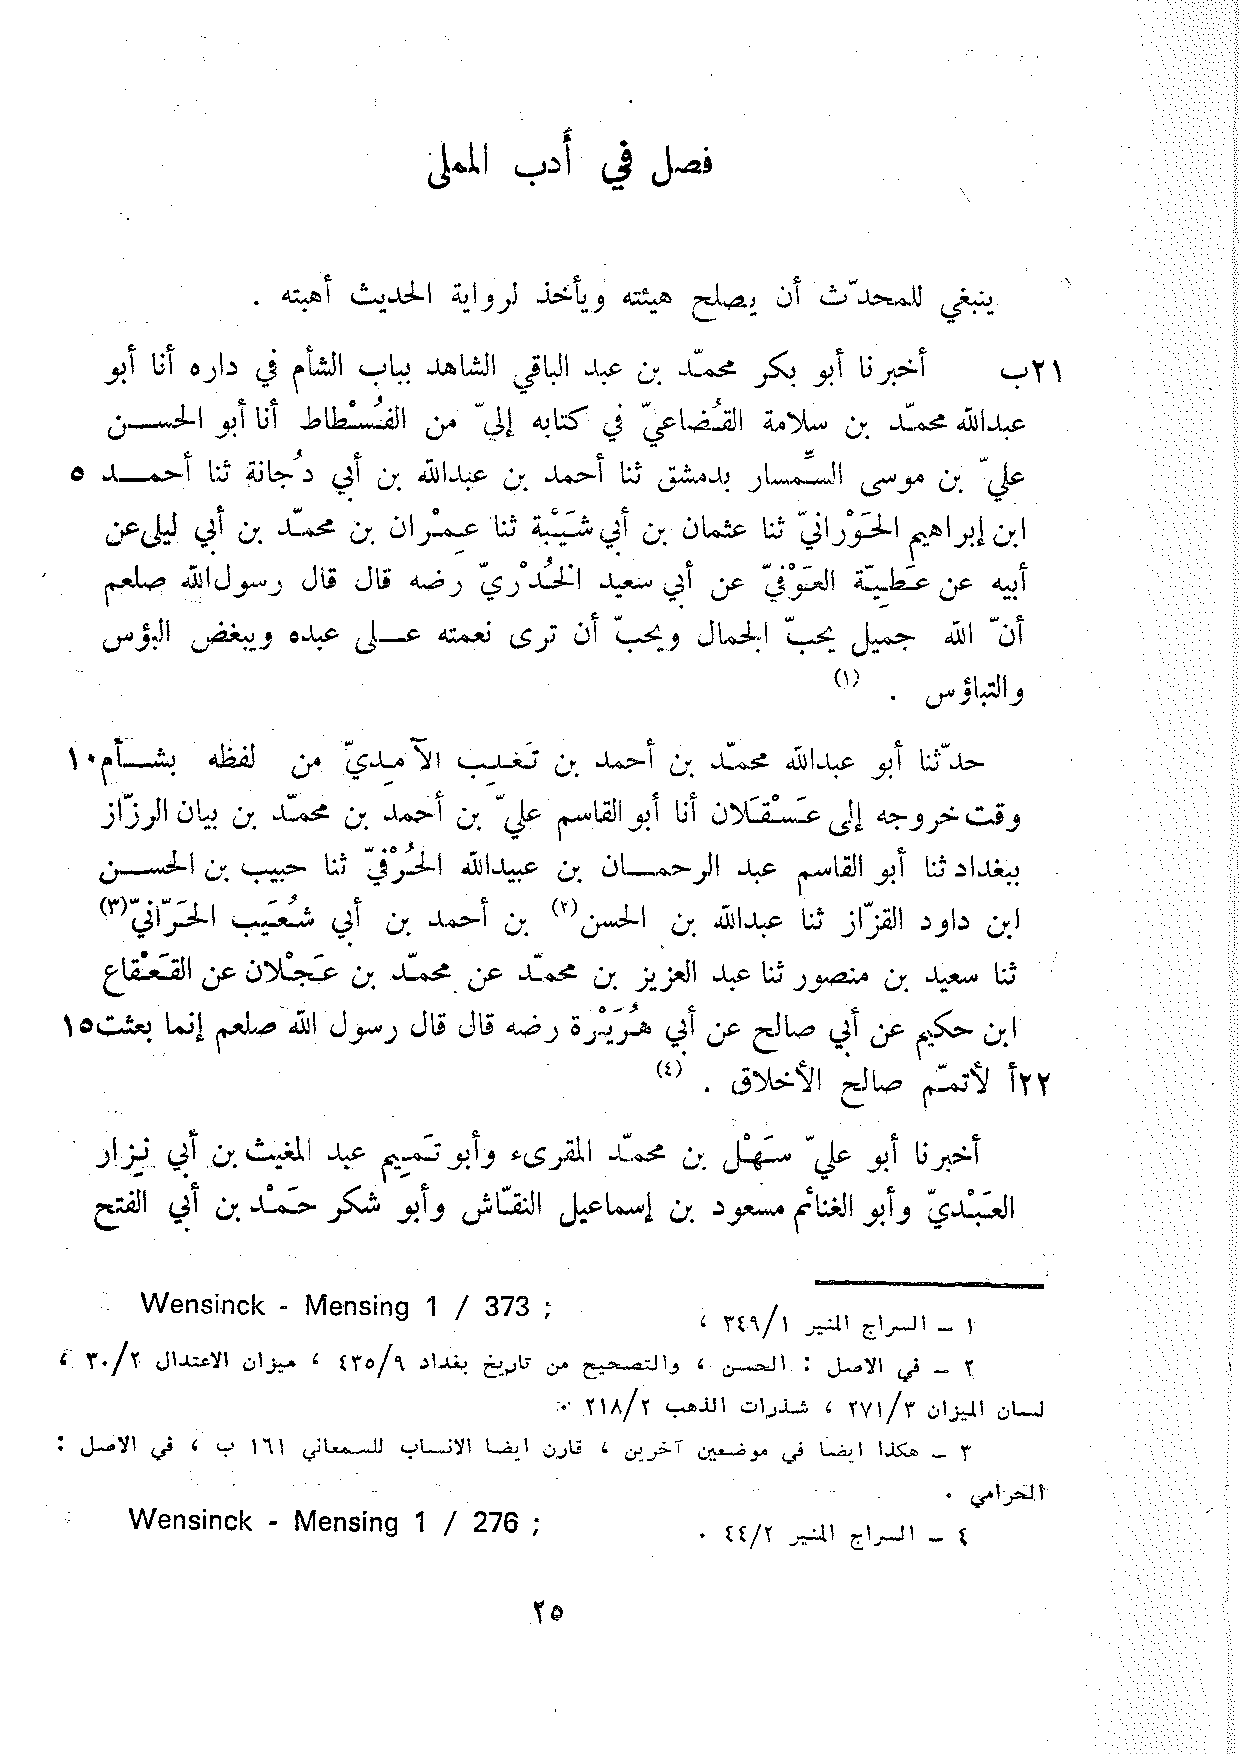 فصل في أدب المملى
ينبغي للمحدّث أن يصلح هيئته ويأخذ لرواية الحديث أهبته .
٢١ب أخبرنا أبو بكر محمّد بن عبد الباقي الشاهد بباب الشأم في داره أنا أبو
عبدالله محمّد بن سلامة القُضاعيّ في كتابه إليّ من الفُسْطاط أنا أبو الحسـن
عليّ بن موسى السِّمْسار بدمشق ثنا أحمد بن عبدالله بن أبي دُجانة ثنا أحمـد ٥
ابن إبراهيم الحَوْرانيّ ثنا عثمان بن أبي شَيْبَة ثنا عِمْران بن محمّد بن أبي ليلى عن
أبيه عن عَطِيّة العَوْفيّ عن أبي سعيد الخُدْريّ رضه قال قال رسول الله صلعم
أنّ الله جميل يحبّ الجمال ويحبّ أن ترى نعمته عـلى عبده ويبغض البؤس
والتباؤس . (١)
حدّثنا أبو عبدالله محمّد بن أحمد بن تَغْلِب الآمِديّ من لفظه بشـأم ١٠
وقت خروجه إلى عَسْقَلان أنا أبو القاسم عليّ بن أحمد بن محمّد بن بيان الرزّاز
ببغداد ثنا أبو القاسم عبد الرحمـان بن عبيدالله الحُرْفيّ ثنا حبيب بن الحسـن
ابن داود القزّاز ثنا عبدالله بن الحسن (٢) بن أحمد بن أبي شُعَيب الحَرّانيّ (٣)
ثنا سعيد بن منصور ثنا عبد العزيز بن محمّد عن محمّد بن عَجْلان عن القَعْقاع
ابن حكيم عن أبي صالح عن أبي هُرَيْرة رضه قال قال رسول الله صلعم إنما بعثت ١٥
٢٢أ لأتمّم صالح الأخلاق . (٤)
أخبرنا أبو عليّ سَهْل بن محمّد المقرىء وأبو تَمِيم عبد المغيث بن أبي نِزار
العَبْديّ وأبو الغنائم مسعود بن إسماعيل النقّاش وأبو شكر حَمْد بن أبي الفتح
١ – السراج المنير ٣٤٩/١ ، Wensinck - Mensing 1 / 373 ;
٢ – في الاصل : الحسن ، والتصحيح من تاريخ بغداد ٤٣٥/٩ ، ميزان الاعتدال ٣٠/٢ ،
لسان الميزان ٢٧١/٣ ، شذرات الذهب ٢١٨/٢ .
٣ – هكذا ايضا في موضعين آخرين ، قارن ايضا الانساب للسمعاني ١٦١ ب ، في الاصل :
الحرامي .
٤ – السراج المنير ٤٤/٢ . Wensinck - Mensing 1 / 276 ;
٢٥